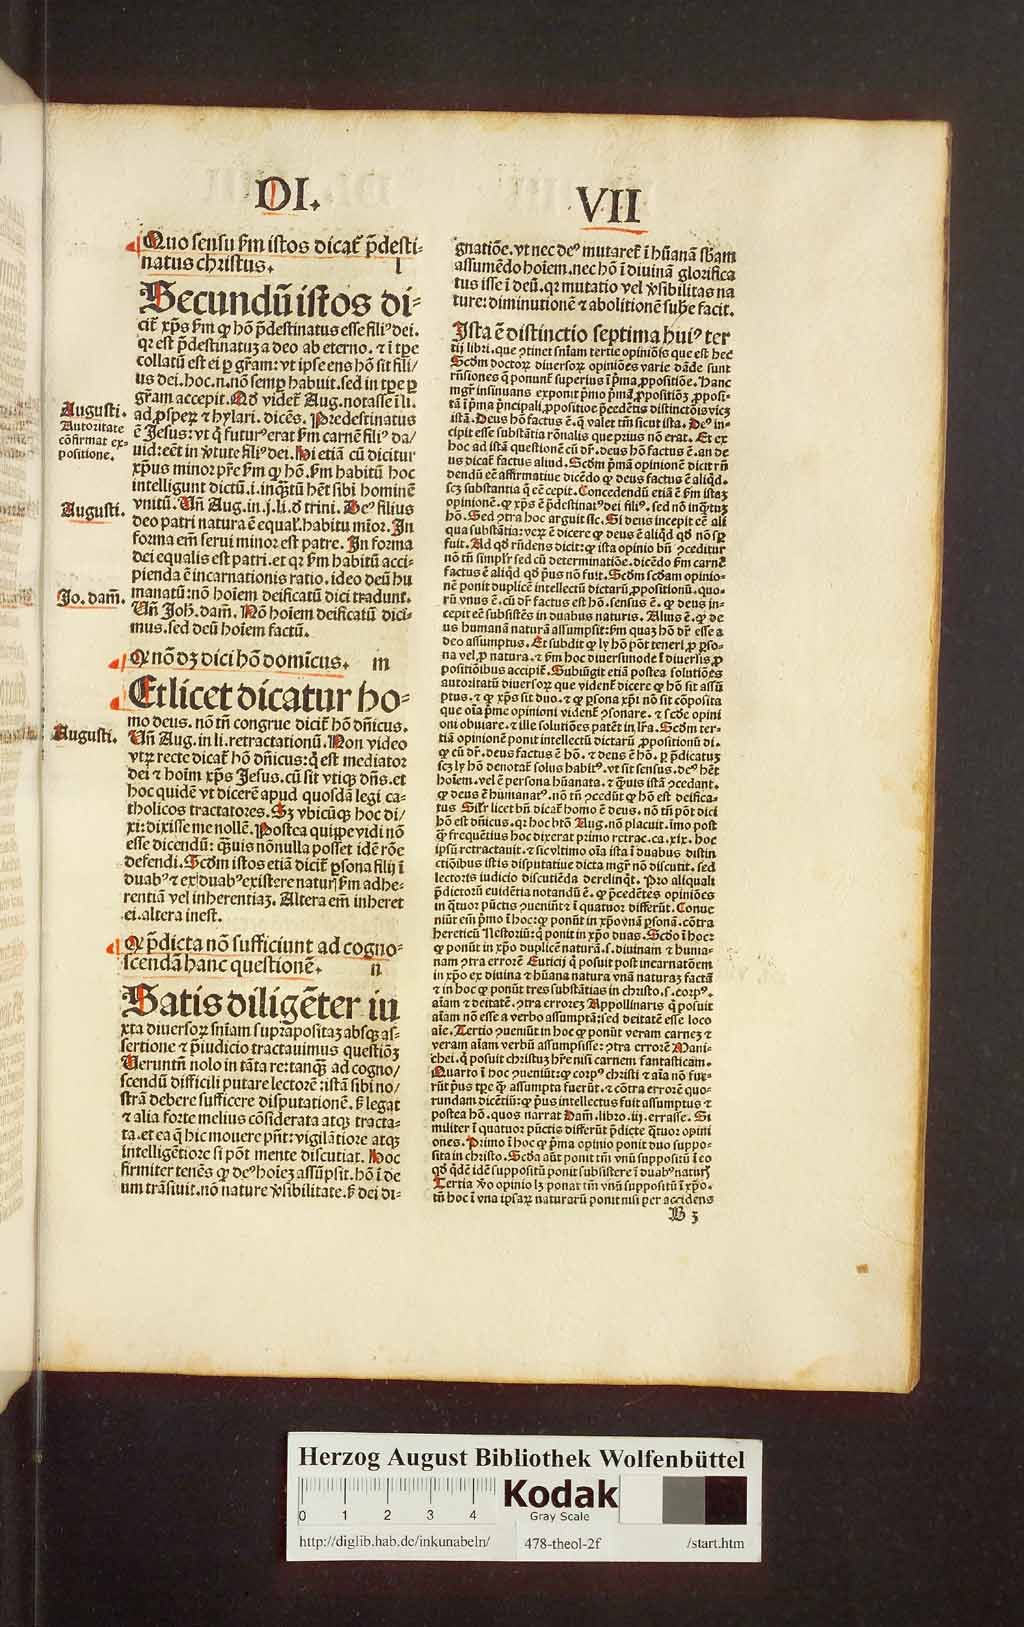 DI. VII
Quo sensu ẜm istos dicat᷑ p̄desti-
natus christus. l
Secundū istos di-
cit᷑ xp̄s ẜm ꝙ hō p̄destinatus esse filiꝰ dei.
qꝛ est p̄destinatuꝫ a deo ab eterno. ⁊ ī tp̄e
collatū est ei ꝑ gr̄am: vt ipse ens hō sit fili/
us dei. hoc.n.nō semꝑ habuit. sed in tp̄e ꝑ
gr̄am accepit. Qd̄ videt᷑ Aug. notasse ī li.
ad ꝓsperꝫ ⁊ hylari. dicēs. Predestinatus
ē Jesus: vt q̇ futurꝰ erat ẜm carnē filiꝰ da/
uid: eēt in v̓tute filiꝰ dei. Hi etiā cū dicitur
xp̄us minor pr̄e ẜm ꝙ hō. ẜm habitū hoc
intelligunt dictū.i.inq̄tū hēt sibi hominē
vnitū. Vn̄ Aug. in.j.li.ḋ trini. Deꝰ filius
deo patri natura ē equal᷑. habitu mīor. In
forma em̄ serui minor est patre. In forma
dei equalis est patri. et qꝛ ẜm habitū acci-
pienda ē incarnationis ratio. ideo deū hu
manatū: nō hoīem deificatū dici tradunt.
Vn̄ Joh̄. dam̄. Nō hoīem deificatū dici-
mus. sed deū hoīem factū.
Augusti.
Autoritate
cōfirmat ex-
positione.
Augusti.
Jo. dam̄.
Ꝙ nō dꝫ dici hō domīcus. m
Et licet dicatur ho-
mo deus. nō tn̄ congrue dicit᷑ hō dn̄icus.
Vn̄ Aug. in li. retractationū. Non video
vtꝝ recte dicat᷑ hō dn̄icus: q̇ est mediator
dei ⁊ hoīm xp̄s Jesus. cū sit vtiqꝫ dn̄s. et
hoc quidē vt dicerē apud quosdā legi ca-
tholicos tractatores. Sꝫ vbicūqꝫ hoc di/
xi: dixisse me nollē. Postea quippe vidi nō
esse dicendū: q̄uis nōnulla posset idē rōe
defendi. Scd̄m istos etiā dicit᷑ ꝑsona filij ī
duabꝰ ⁊ ex duabꝰ existere naturꝭ ẜm adhe-
rentiā vel inherentiaꝫ. Altera em̄ inheret
ei. altera inest.
Augusti.
Ꝙ p̄dicta nō sufficiunt ad cogno-
scendā hanc questionē. n
Satis diligēter iu
xta diuersoꝝ sn̄iam supͣpositaꝫ absqꝫ as-
sertione ⁊ p̄iudicio tractauimus questiōꝫ
Veruntn̄ nolo in tāta re: tanqꝫ ad cogno/
scendū difficili putare lectorē: istā sibi no/
strā debere sufficere disputationē. ẜ legat
⁊ alia forte melius cōsiderata atqꝫ tracta-
ta. et ea q̄ hic mouere pn̄t: vigilātiore atqꝫ
intelligētiore si pōt mente discutiat. Hoc
firmiter tenēs ꝙ deꝰ hoīeꝫ assūpsit. hō ī de
um trāsiuit. nō nature v̓sibilitate. ẜ dei di-
gnatiōe. vt nec deꝰ mutaret᷑ ī hūanā sb̄am
assumēdo hoīem. nec hō ī diuinā glorifica
tus isse ī deū. qꝛ mutatio vel v̓sibilitas na
ture: diminutionē ⁊ abolitionē sub̄e facit.
Ista ē distinctio septima huiꝰ ter
tij libri. que ꝯtinet sn̄iam tertie opiniōis que est hec
Scd̄m doctoꝝ diuersoꝝ opiniōes varie dāde sunt
rn̄siones q̄ ponunt᷑ superius ī pͥma ꝓpositiōe. Hanc
mgr̄ insinuans exponit pͥmo pͥmaꝫ ꝓpositioꝫ ꝓposi-
tā ī pͥma pͥncipali ꝓpositioe p̄cedētis distinctōis viꝫ
istā. Deus hō factus ē. q̄ valet tm̄ sicut ista. Deꝰ in-
cipit esse substātia rōnalis que prius nō erat. Et ex
hoc ad istā questionē cū dr̄. deus hō factus ē. an de
us dicat᷑ factus aliud. Scd̄m pͥmā opinionē dicit rn̄
dendū eē affirmatiue dicēdo ꝙ deus factus ē aliqd̄.
scꝫ substantia q̄ eē cepit. Concedendū etiā ē ẜm istaꝫ
opinionē. ꝙ xp̄s ē p̄destinatꝰ dei filiꝰ. sed nō inq̄tuꝫ
hō. Sed ꝯtra hoc arguit sic. Si deus incepit eē ali
qua substātia: veꝝ ē dicere ꝙ deus ē aliqd̄ qd̄ nō sꝑ
fuit. Ad qd̄ rn̄dens dicit: ꝙ ista opinio bn̄ ꝯceditur
nō tn̄ simplr̄ sed cū determinatiōe. dicēdo ẜm carnē
factus ē aliqd̄ qd̄ pͥus nō fuit. Scd̄m scd̄am opinio-
nē ponit duplicē intellectū dictarū ꝓpositionū. quo-
rū vnus ē. cū dr̄ factus est hō. sensus ē. ꝙ deus in-
cepit eē subsistēs in duabus naturis. Alius ē. ꝙ de
us humanā naturā assumpsit: ẜm quaꝫ hō dr̄ esse a
deo assumptus. Et subdit ꝙ ly hō pōt teneri ꝓ ꝑso-
na vel ꝓ natura. ⁊ ẜm hoc diuersimode ī diuersis ꝓ
positiōibus accipit᷑. Subiūgit etiā postea solutiōes
autoritatū diuersoꝝ que vident᷑ dicere ꝙ hō sit assū
ptus. ⁊ ꝙ xp̄s sit duo. ⁊ ꝙ ꝑsona xp̄i nō sit cōposita
que oīa pͥme opinioni vident᷑ ꝯsonare. ⁊ scd̄e opini
oni obuiare. ⁊ ille solutiōes patēt in lr̄a. Scd̄m ter-
tiā opinionē ponit intellectū dictarū ꝓpositionū di.
ꝙ cū dr̄. deus factus ē hō. ⁊ deus ē hō. ꝑ p̄dicatuꝫ
scꝫ ly hō denotat᷑ solus habitꝰ. vt sit sensus. deꝰ hēt
hoīem. vel ē persona hūanata. ⁊ q̄uis istā ꝯcedant.
ꝙ deus ē humanatꝰ. nō tn̄ ꝯcedūt ꝙ hō est deifica-
tus Silr̄ licet bn̄ dicat᷑ homo ē deus. nō tn̄ pōt dici
hō est dn̄icus. qꝛ hoc btō Aug. nō placuit. imo post
q̄ frequētius hoc dixerat primo retrac. ca. xix. hoc
ipsū retractauit. ⁊ sic vltimo oīa ista ī duabus distin
ctiōibus istis disputatiue dicta mgr̄ nō discutit. sed
lectoris iudicio discutiēda derelinq̇t. Pro aliquali
p̄dictorū euidētia notandū ē. ꝙ p̄cedētes opiniōes
in q̇tuor pūctis ꝯueniūt ⁊ ī quatuor differūt. Conue
niūt em̄ pͥmo ī hoc: ꝙ ponūt in xp̄o vnā ꝑsonā. cōtra
hereticū Nestoriū: q̇ ponit in xp̄o duas. Scd̄o ī hoc:
ꝙ ponūt in xp̄o duplicē naturā. s. diuinam ⁊ huma-
nam ꝯtra errorē Euticij q̇ posuit post incarnatōem
in xp̄o ex diuina ⁊ hūana natura vnā naturaꝫ factā
⁊ in hoc ꝙ ponūt tres substātias in christo. s. corpꝰ.
aīam ⁊ deitatē. ꝯtra erroreꝫ Appollinaris q̇ posuit
aīam nō esse a verbo assumptā: sed deitatē esse loco
aīe. Tertio ꝯueniūt in hoc ꝙ ponūt veram carneꝫ ⁊
veram aīam verbū assumpsisse: ꝯtra errorē Mani-
chei. q̇ posuit christuꝫ hr̄e nisi carnem fantasticam.
Quarto ī hoc ꝯueniūt: ꝙ corpꝰ christi ⁊ aīa nō fue-
rūt pͥus tp̄e q̄ assumpta fuerūt. ⁊ cōtra errorē quo-
rundam dicētiū: ꝙ pͥus intellectus fuit assumptus ⁊
postea hō. quos narrat Dam̄. libro. iij. errasse. Si
militer ī quatuor pūctis differūt p̄dicte q̇tuor opini
ones. Primo ī hoc ꝙ pͥma opinio ponit duo suppo-
sita in christo. Scd̄a aūt ponit tm̄ vnū suppositū ī xp̄o.
qd̄ q̇dē idē suppositū ponit subsistere ī duabꝰ naturꝭ
Tertia v̓o opinio lꝫ ponat tm̄ vnū suppositū ī xp̄o.
tn̄ hoc ī vna ipsaꝝ naturarū ponit nisi per accidens
B 3
Herzog August Bibliothek Wolfenbüttel
0 1 2 3 4
Kodak
Gray Scale
http://diglib.hab.de/inkunabeln/ 478-theol-2f /start.htm